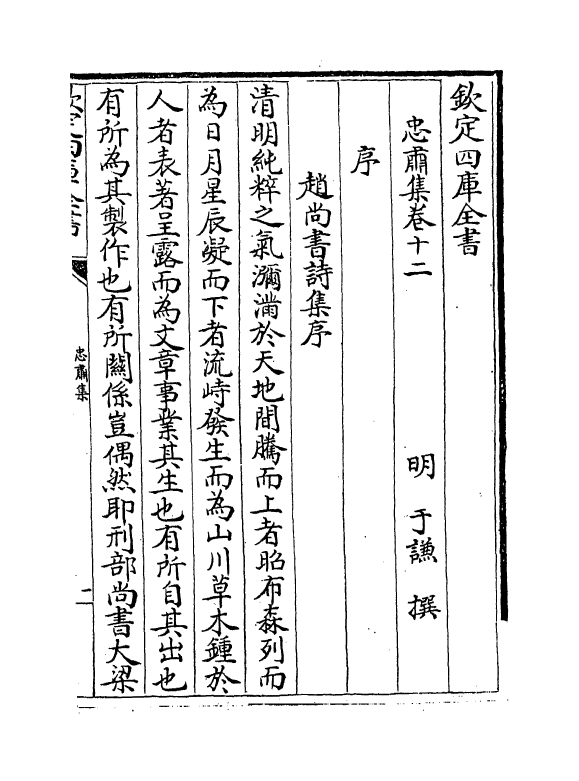 欽定四庫全書
忠肅集卷十二　明　于謙　撰
序
趙尚書詩集序
清明純粹之氣瀰滿於天地間騰而上者昭布森列而
為日月星辰凝而下者流峙發生而為山川草木鍾於
人者表著呈露而為文章事業其生也有所自其出也
有所為其製作也有所關係豈偶然耶刑部尚書大梁
欽定四庫全書
忠肅集